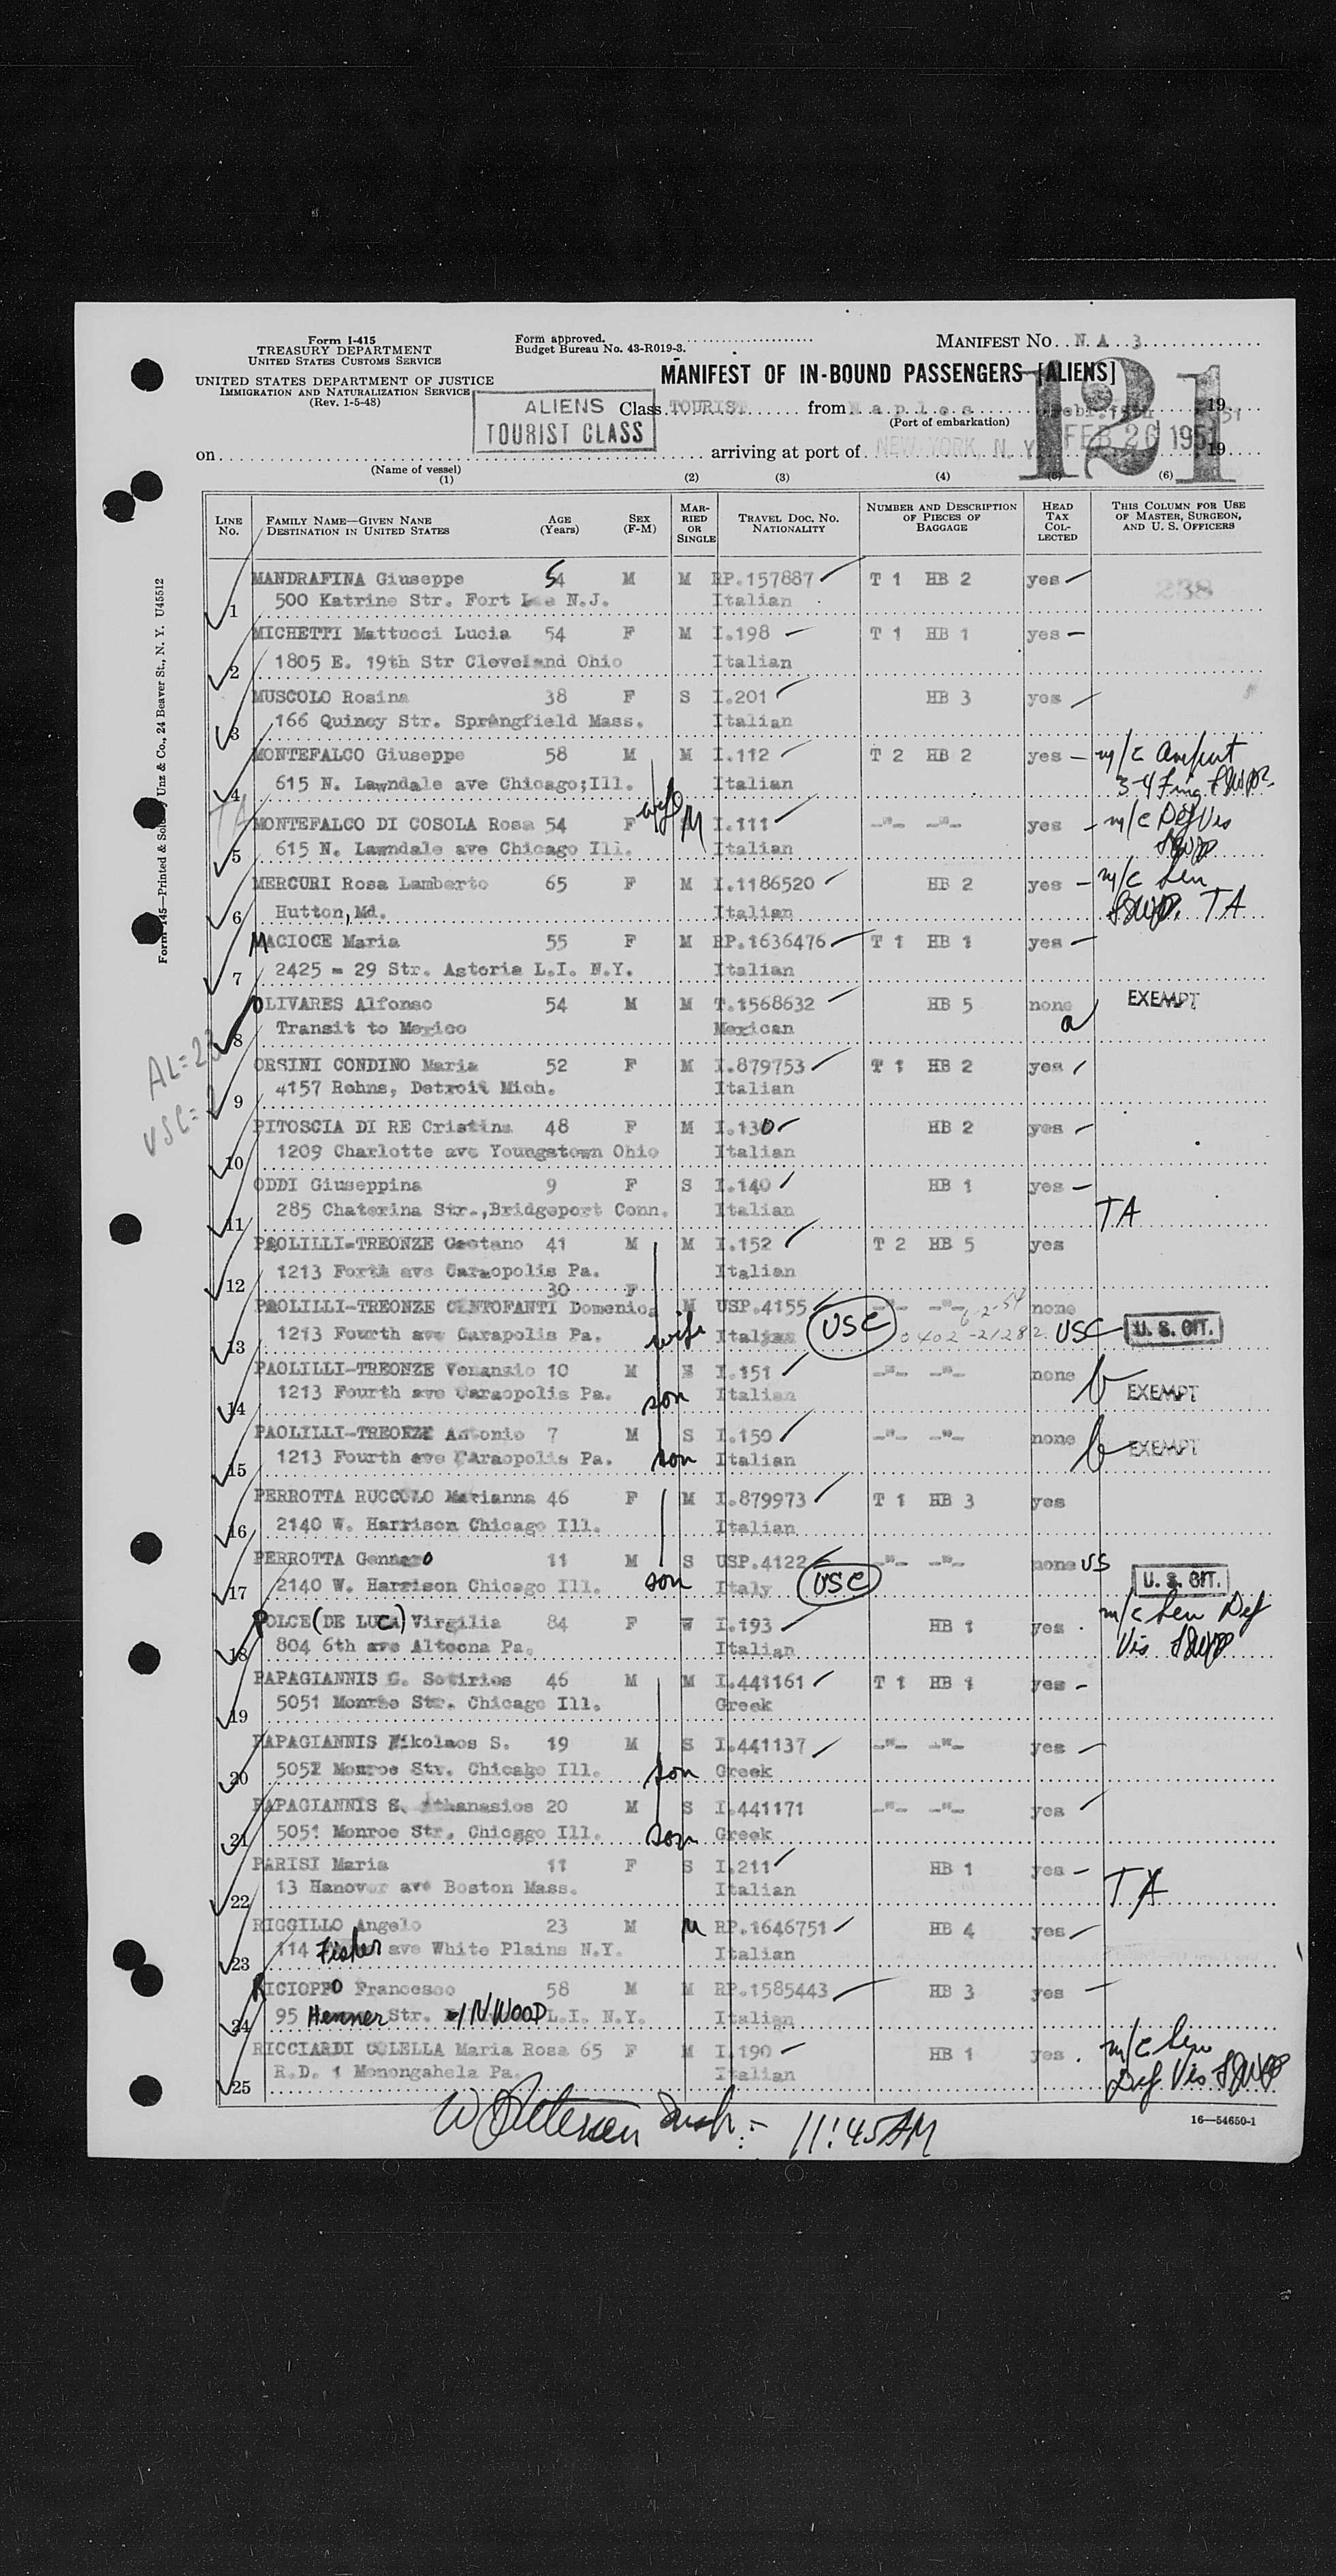 Form I-415
TREASURY DEPARTMENT
UNITED STATES CUSTOMS SERVICE
UNITED STATES DEPARTMENT OF JUSTICE
IMMIGRATION AND NATURALIZATION SERVICE
(Rev. 1-5-48)
Form approved.
Budget Bureau No. 43-R019-3.
MANIFEST NO. N.A. 3
MANIFEST OF IN-BOUND PASSENGERS [ALIENS]
121
ALIENS
TOURIST CLASS
Class TOURIST from Naples Febr. 15th, 1951
(Port of embarkation)
on arriving at port of NEW YORK, N. Y. FEB 26 1951, 19
(Name of vessel)
(1) (2) (3) (4) (5) (6)
LINE No. FAMILY NAME—GIVEN NAME DESTINATION IN UNITED STATES AGE (Years) SEX (F-M) MARRIED OR SINGLE TRAVEL DOC. NO. NATIONALITY NUMBER AND DESCRIPTION OF PIECES OF BAGGAGE HEAD TAX COLLECTED THIS COLUMN FOR USE OF MASTER, SURGEON, AND U. S. OFFICERS
MANDRAFINA Giuseppe 54 M M RP.157887 T 1 HB 2 yes 238
1 500 Katrine Str. Fort Lee N.J. Italian
MICHETTI Mattucci Lucia 54 F M I.198 T 1 HB 1 yes
2 1805 E. 19th Str Cleveland Ohio Italian
MUSCOLO Rosina 38 F S I.201 HB 3 yes
3 166 Quincy Str. Springfield Mass. Italian
MONTEFALCO Giuseppe 58 M M I.112 T 2 HB 2 yes m/c
4 615 N. Lawndale ave Chicago;Ill. Italian 3-4 Fing
MONTEFALCO DI COSOLA Rosa 54 F wife M I.111 -"- -"- yes m/c Def Vis
5 615 N. Lawndale ave Chicago Ill. Italian
MERCURI Rosa Lamberto 65 F M I.1186520 HB 2 yes m/c Sen
6 Hutton, Md. Italian TA
MACIOCE Maria 55 F M RP.1636476 T 1 HB 1 yes
7 2425 = 29 Str. Astoria L.I. N.Y. Italian
OLIVARES Alfonso 54 M M T.1568632 HB 5 none a EXEMPT
8 Transit to Mexico Mexican
ORSINI CONDINO Maria 52 F M I.879753 T 1 HB 2 yes
9 4157 Rohns, Detroit Mich. Italian
PITOSCIA DI RE Cristina 48 F M I.130 HB 2 yes
10 1209 Charlotte ave Youngstown Ohio Italian
ODDI Giuseppina 9 F S I.140 HB 1 yes
11 285 Chaterina Str.,Bridgeport Conn. Italian TA
PAOLILLI-TREONZE Gaetano 41 M M I.152 T 2 HB 5 yes
12 1213 Forth ave Caraopolis Pa. Italian
30 F
PAOLILLI-TREONZE CENTOFANTI Domenica M USP.4155 -"- -"- none
13 1213 Fourth ave Carapolis Pa. wife Italian USC 0402-21282 USC U. S. CIT.
PAOLILLI-TREONZE Venanzio 10 M S I.151 -"- -"- none
14 1213 Fourth ave Caraopolis Pa. son Italian b EXEMPT
PAOLILLI-TREONZE Antonio 7 M S I.150 -"- -"- none
15 1213 Fourth ave CAraopolis Pa. son Italian b EXEMPT
PERROTTA RUCCOLO Marianna 46 F M I.879973 T 1 HB 3 yes
16 2140 W. Harrison Chicago Ill. Italian
PERROTTA Gennaro 11 M S USP.4122 -"- -"- none US
17 2140 W. Harrison Chicago Ill. son Italy USC U. S. CIT.
POLCE (DE LUCA) Virgilia 84 F W I.193 HB 1 yes m/c Sen Def
18 804 6th ave Altoona Pa. Italian Vis
PAPAGIANNIS G. Sotirios 46 M M I.441161 T 1 HB 1 yes
19 5051 Monroe Str. Chicago Ill. Greek
PAPAGIANNIS Nikolaos S. 19 M S I.441137 -"- -"- yes
20 5051 Monroe Str. Chicago Ill. son Greek
PAPAGIANNIS S. Athanasios 20 M S I.441171 -"- -"- yes
21 5051 Monroe Str. Chicago Ill. son Greek
PARISI Maria 11 F S I.211 HB 1 yes
22 13 Hanover ave Boston Mass. Italian TA
RIGGILLO Angelo 23 M M RP.1646751 HB 4 yes
23 114 Fisher ave White Plains N.Y. Italian
RICIOPPO Francesco 58 M M RP.1585443 HB 3 yes
24 95 Henner Str. INWOOD L.I. N.Y. Italian
RICCIARDI COLELLA Maria Rosa 65 F M I.190 HB 1 yes m/c Sen
25 R.D. 1 Monongahela Pa. Italian Def Vis
11:45 AM
16—54650-1
AL=23
USC=
TA
Unz & Co., 24 Beaver St., N. Y. U45512